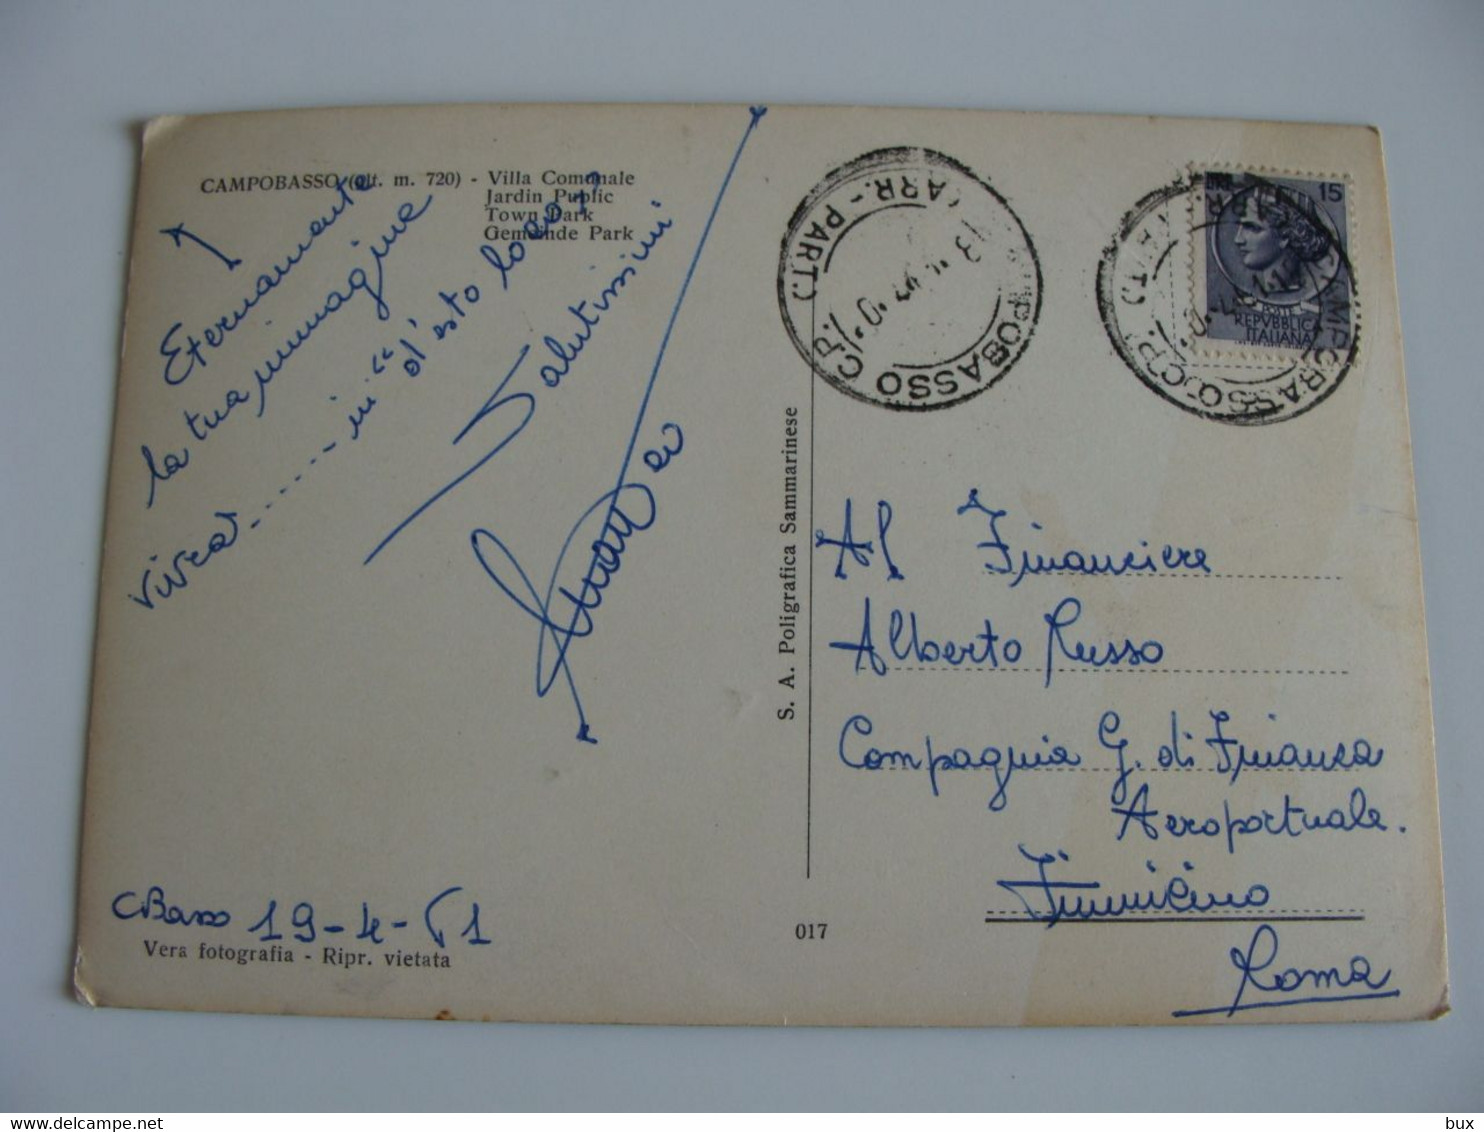 CAMPOBASSO (alt. m. 720) - Villa Comunale
Jardin Public
Town Park
Gemeinde Park
Eternamente
la tua immagine
vivrà ...... in "
d'esto loco"
Salutissimi
CBasso 19-4-61
Vera fotografia - Ripr. vietata
S. A. Poligrafica Sammarinese
017
CAMPOBASSO C.P.
(ARR. - PART.)
15
REPVBBLICA
ITALIANA
Al Financiere
Alberto Russo
Compagnia G. di Finanza
Aeroportuale.
Fiumicino
Roma
bux